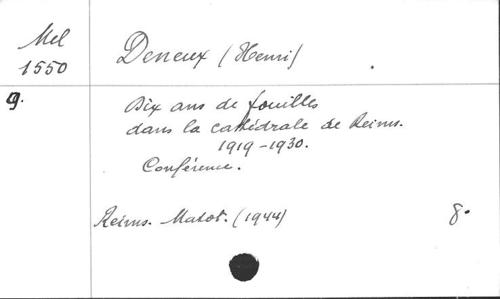 Mel
1550
Deneux (Henri)
9.
Dix ans de fouilles
dans la cathédrale de Reims.
1919-1930.
Conférence.
Reims. Matot. (1944)
8°